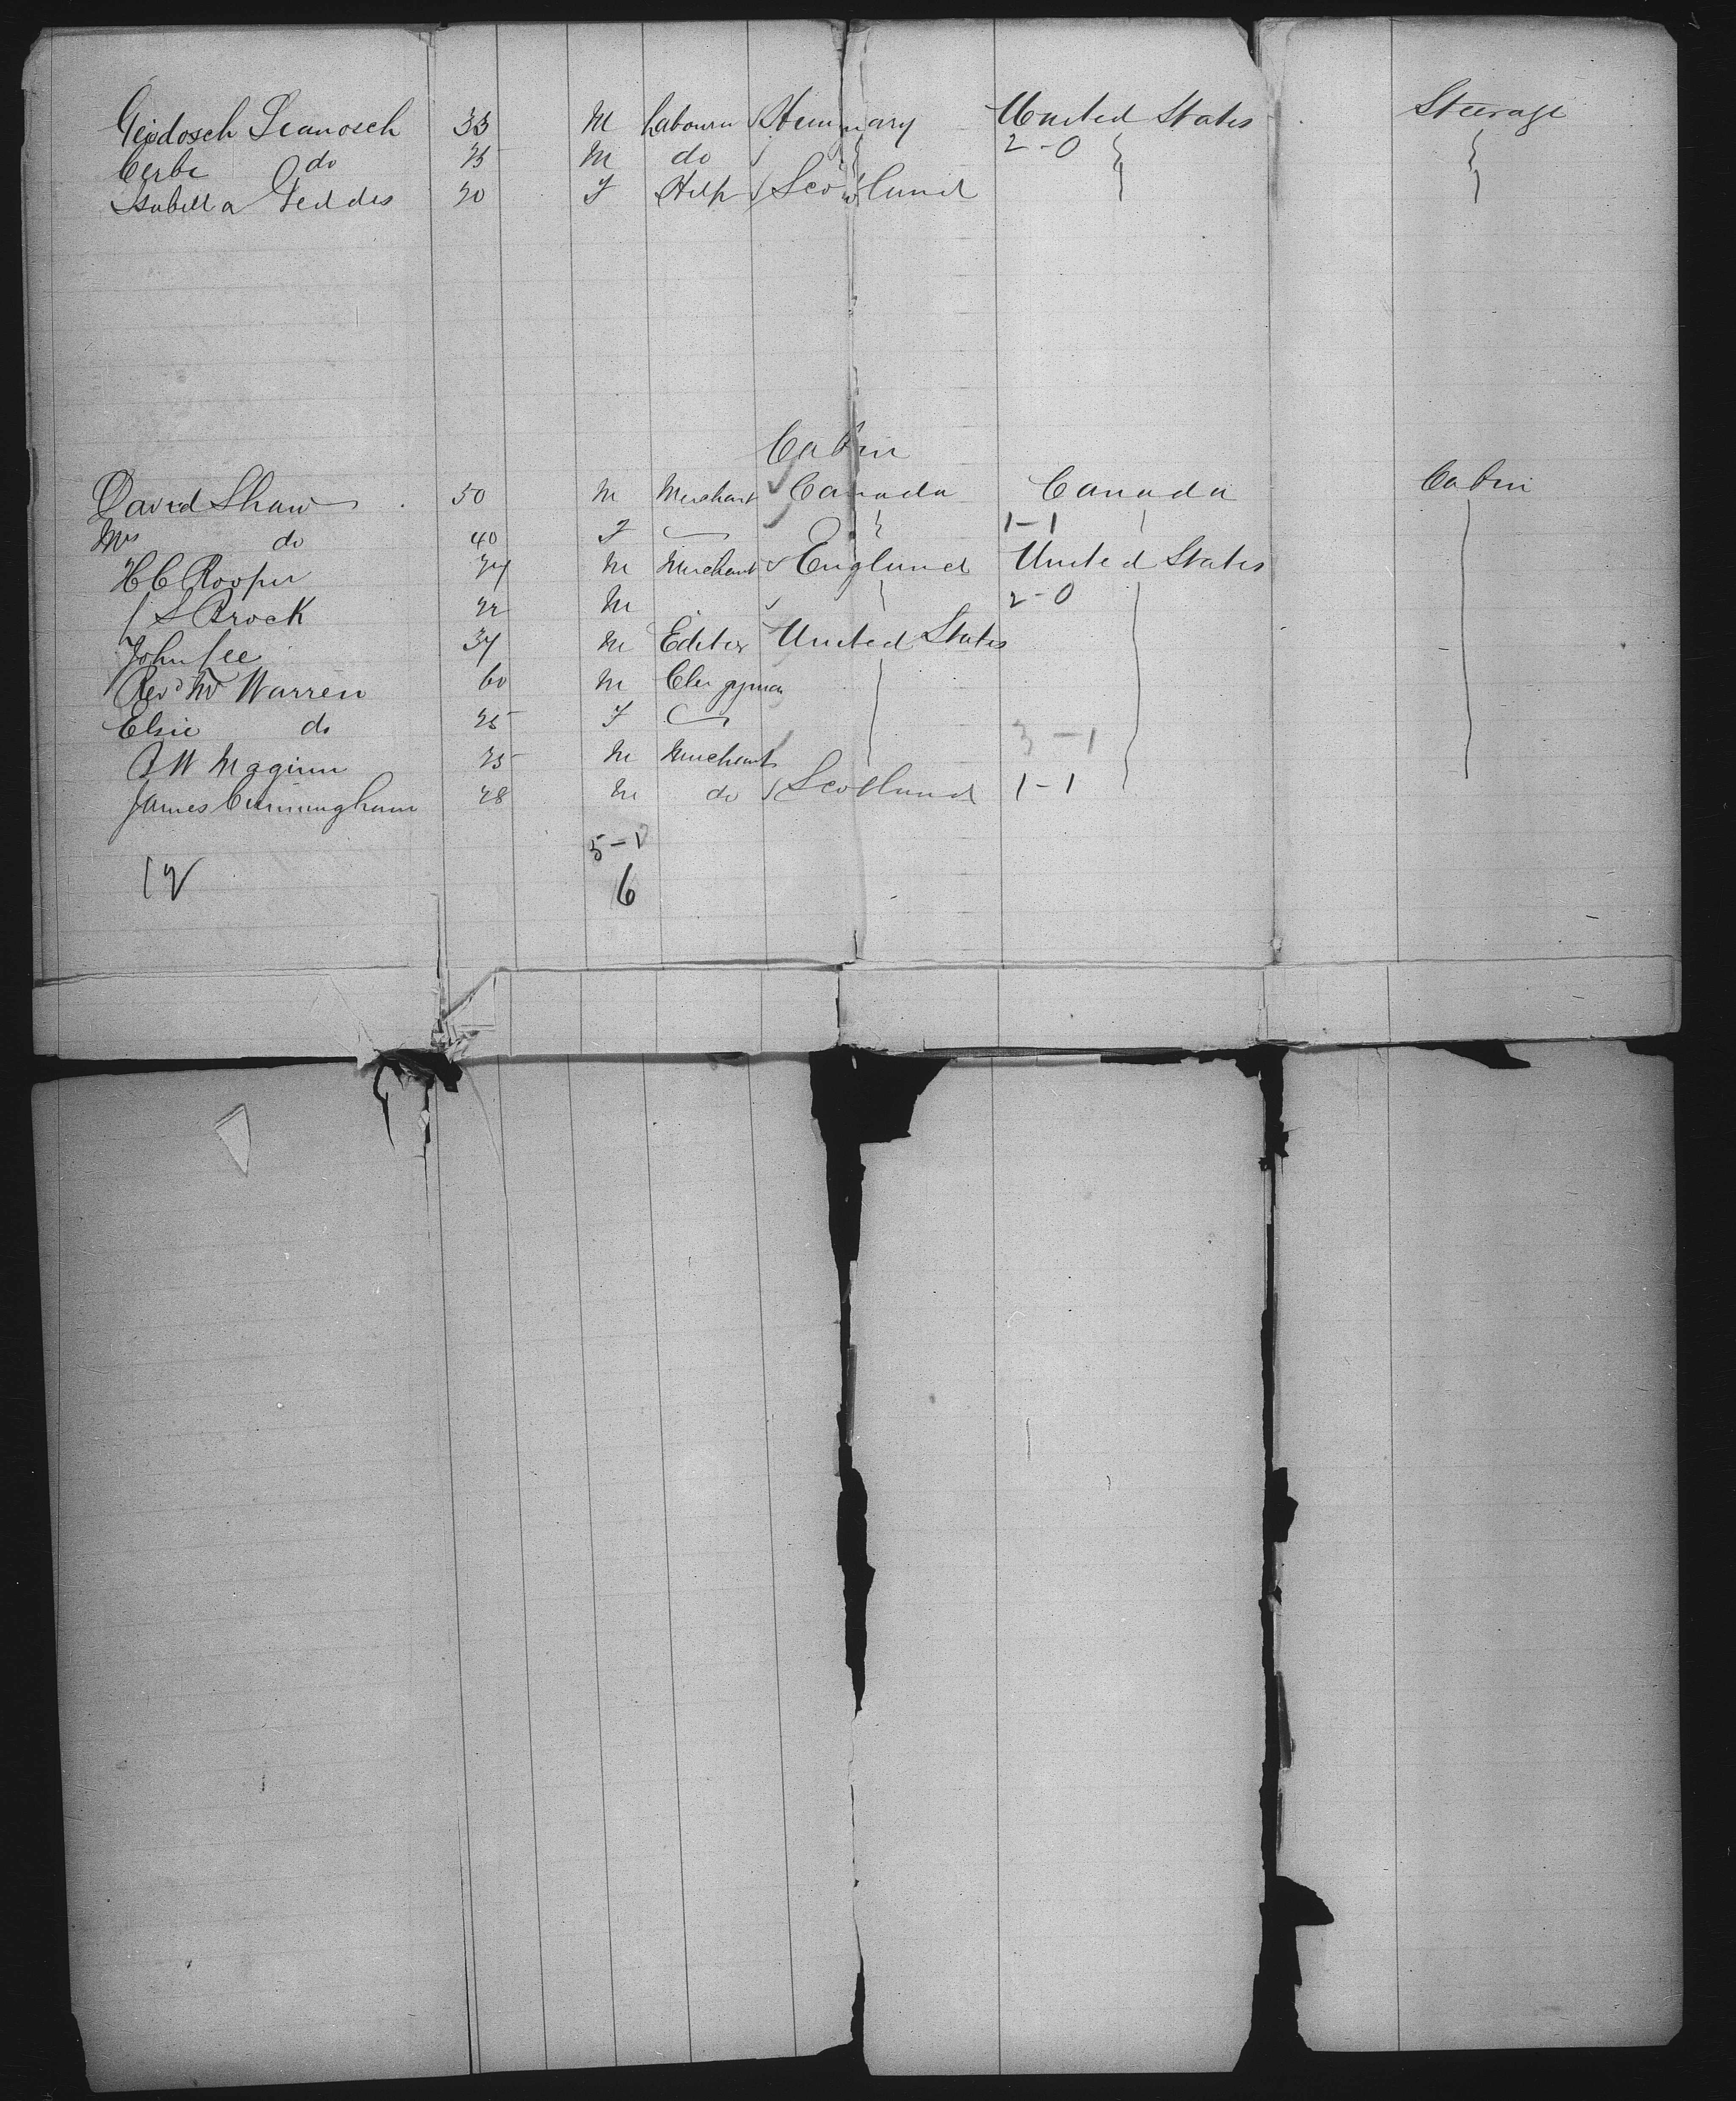 Geodosch Leanosch 33 M Labourer Hungary United States Steerage
Cerbe do 25 M do 2-0
Isabella Geddes 20 F Help Scotland
Cabin
David Shaw 50 M Merchant Canada Canada Cabin
Mrs do 40 F 1-1
H C Rooper 24 M Merchant England United States
J S Brock 22 M 2-0
John Lee 34 M Editor United States
Revd Mr Warren 60 M Clergyman
Elsie do 25 F 3-1
J W Maginn 25 M Merchant
James Cunningham 28 M do Scotland 1-1
5-1
12
6